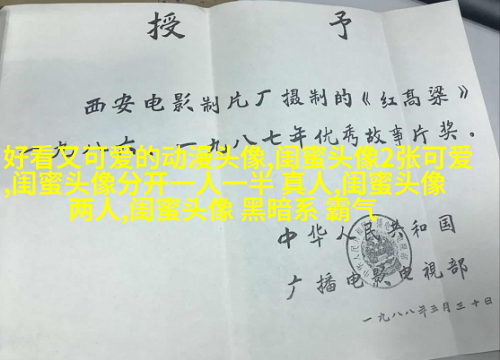 授 予
西安电影制片厂摄制的《红髙粱》
一九八六、一九八七年优秀故事片奖。
好看又可爱的动漫头像,闺蜜头像2张可爱
,闺蜜头像分开一人一半 真人,闺蜜头像
两人,闺蜜头像 黑暗系 霸气
中华人民共和国
广播电影电視部
一九八八年三月三十日